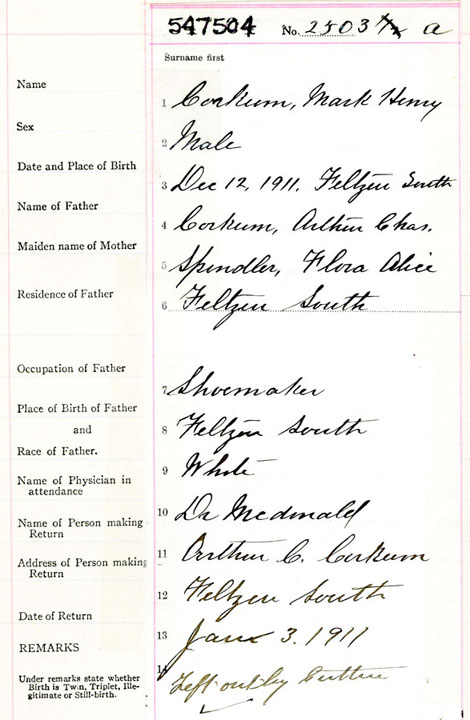 547504 No. 2503½ a
Surname first
Name
1 Corkum, Mark Henry
Sex
2 Male
Date and Place of Birth
3 Dec 12, 1911. Feltzen South
Name of Father
4 Corkum, Arthur Chas.
Maiden name of Mother
5 Spindler, Flora Alice
Residence of Father
6 Feltzen South
Occupation of Father
7 Shoemaker
Place of Birth of Father
8 Feltzen South
and
Race of Father.
9 White
Name of Physician in
attendance
10 Dr Mcdonald
Name of Person making
Return
11 Arthur C. Corkum
Address of Person making
Return
12 Feltzen South
Date of Return
13 Jan 3. 1911
REMARKS
14 Left out by
Under remarks state whether
Birth is Twin, Triplet, Ille-
gitimate or Still-birth.